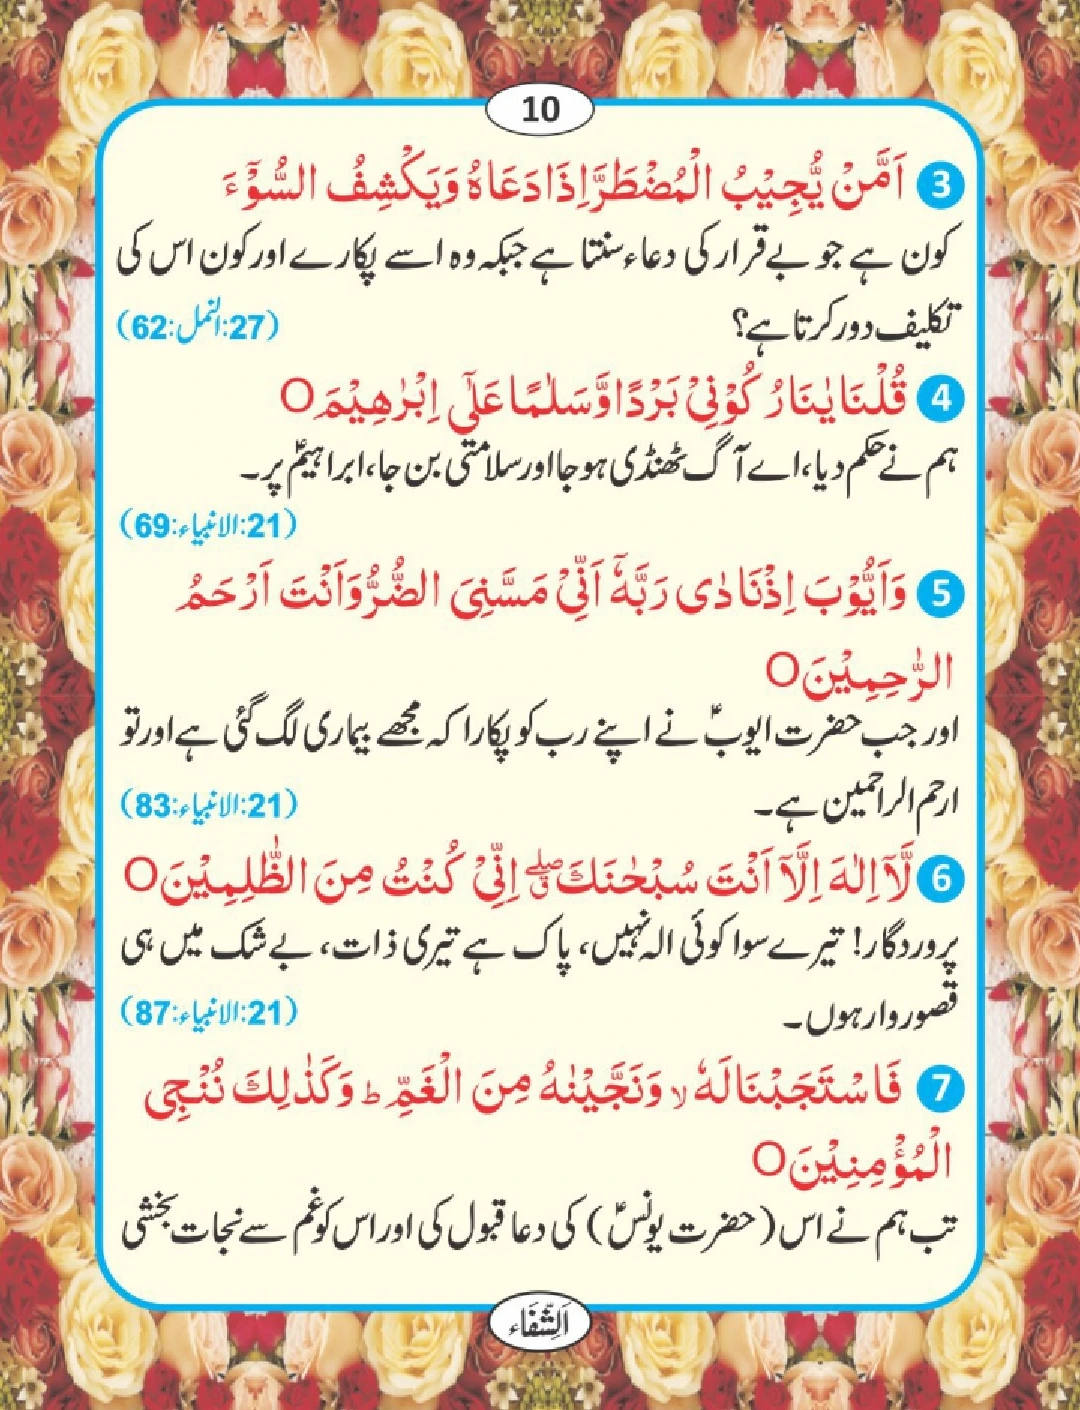 10
3 اَمَّنْ يُّجِيْبُ الْمُضْطَرَّ اِذَا دَعَاهُ وَيَكْشِفُ السُّوْٓءَ
کون ہے جو بے قرار کی دعاء سنتا ہے جبکہ وہ اسے پکارے اور کون اس کی
تکلیف دور کرتا ہے؟ (27:النمل:62)
4 قُلْنَا يٰنَارُ كُوْنِيْ بَرْدًا وَّسَلٰمًا عَلٰٓى اِبْرٰهِيْمَO
ہم نے حکم دیا، اے آگ ٹھنڈی ہو جا اور سلامتی بن جا، ابراہیمؑ پر۔
(21:الانبیاء:69)
5 وَاَيُّوْبَ اِذْنَادٰى رَبَّهٗٓ اَنِّيْ مَسَّنِيَ الضُّرُّ وَاَنْتَ اَرْحَمُ
الرّٰحِمِيْنَO
اور جب حضرت ایوبؑ نے اپنے رب کو پکارا کہ مجھے بیماری لگ گئی ہے اور تو
ارحم الراحمین ہے۔ (21:الانبیاء:83)
6 لَّآ اِلٰهَ اِلَّآ اَنْتَ سُبْحٰنَكَ ۖق اِنِّيْ كُنْتُ مِنَ الظّٰلِمِيْنَO
پروردگار! تیرے سوا کوئی الہ نہیں، پاک ہے تیری ذات، بے شک میں ہی
قصوروار ہوں۔ (21:الانبیاء:87)
7 فَاسْتَجَبْنَا لَهٗ ۙ وَنَجَّيْنٰهُ مِنَ الْغَمِّ ؕ وَكَذٰلِكَ نُنْجِى
الْمُؤْمِنِيْنَO
تب ہم نے اس (حضرت یونسؑ) کی دعا قبول کی اور اس کو غم سے نجات بخشی
اَلشِّفَاء